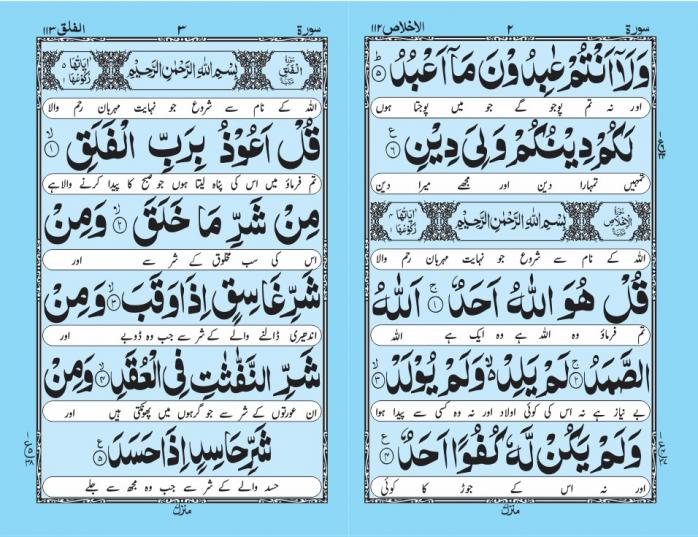 سورة ٢ الاخلاص ١١٢
وَلَآ اَنْتُمْ عٰبِدُوْنَ مَآ اَعْبُدُ ۵
اور نہ تم پوجو گے جو میں پوجتا ہوں
لَكُمْ دِيْنُكُمْ وَلِيَ دِيْنِ ٦
تمہیں تمہارا دین اور مجھے میرا دین
سورة الاخلاص مكية بِسْمِ اللهِ الرَّحْمٰنِ الرَّحِيْمِ اياتها ٤ ركوعها ١
اللہ کے نام سے شروع جو نہایت مہربان رحم والا
قُلْ هُوَ اللهُ اَحَدٌ ١ اَللهُ
تم فرماؤ وہ اللہ ہے وہ ایک ہے اللہ
الصَّمَدُ ٢ لَمْ يَلِدْ وَلَمْ يُوْلَدْ ٣
بے نیاز ہے نہ اس کی کوئی اولاد اور نہ وہ کسی سے پیدا ہوا
وَلَمْ يَكُنْ لَّهٗ كُفُوًا اَحَدٌ ٤
اور نہ اس کے جوڑ کا کوئی
منزل
سورة ٣ الفلق ١١٣
سورة الفلق بِسْمِ اللهِ الرَّحْمٰنِ الرَّحِيْمِ اياتها ٥ ركوعها ١
اللہ کے نام سے شروع جو نہایت مہربان رحم والا
قُلْ اَعُوْذُ بِرَبِّ الْفَلَقِ ١
تم فرماؤ میں اس کی پناہ لیتا ہوں جو صبح کا پیدا کرنے والا ہے
مِنْ شَرِّ مَا خَلَقَ ٢ وَمِنْ
اس کی سب مخلوق کے شر سے اور
شَرِّ غَاسِقٍ اِذَا وَقَبَ ٣ وَمِنْ
اندھیری ڈالنے والے کے شر سے جب وہ ڈوبے اور
شَرِّ النَّفّٰثٰتِ فِى الْعُقَدِ ٤ وَمِنْ
ان عورتوں کے شر سے جو گرہوں میں پھونکتی ہیں اور
شَرِّ حَاسِدٍ اِذَا حَسَدَ ٥
حسد والے کے شر سے جب وہ مجھ سے جلے
منزل